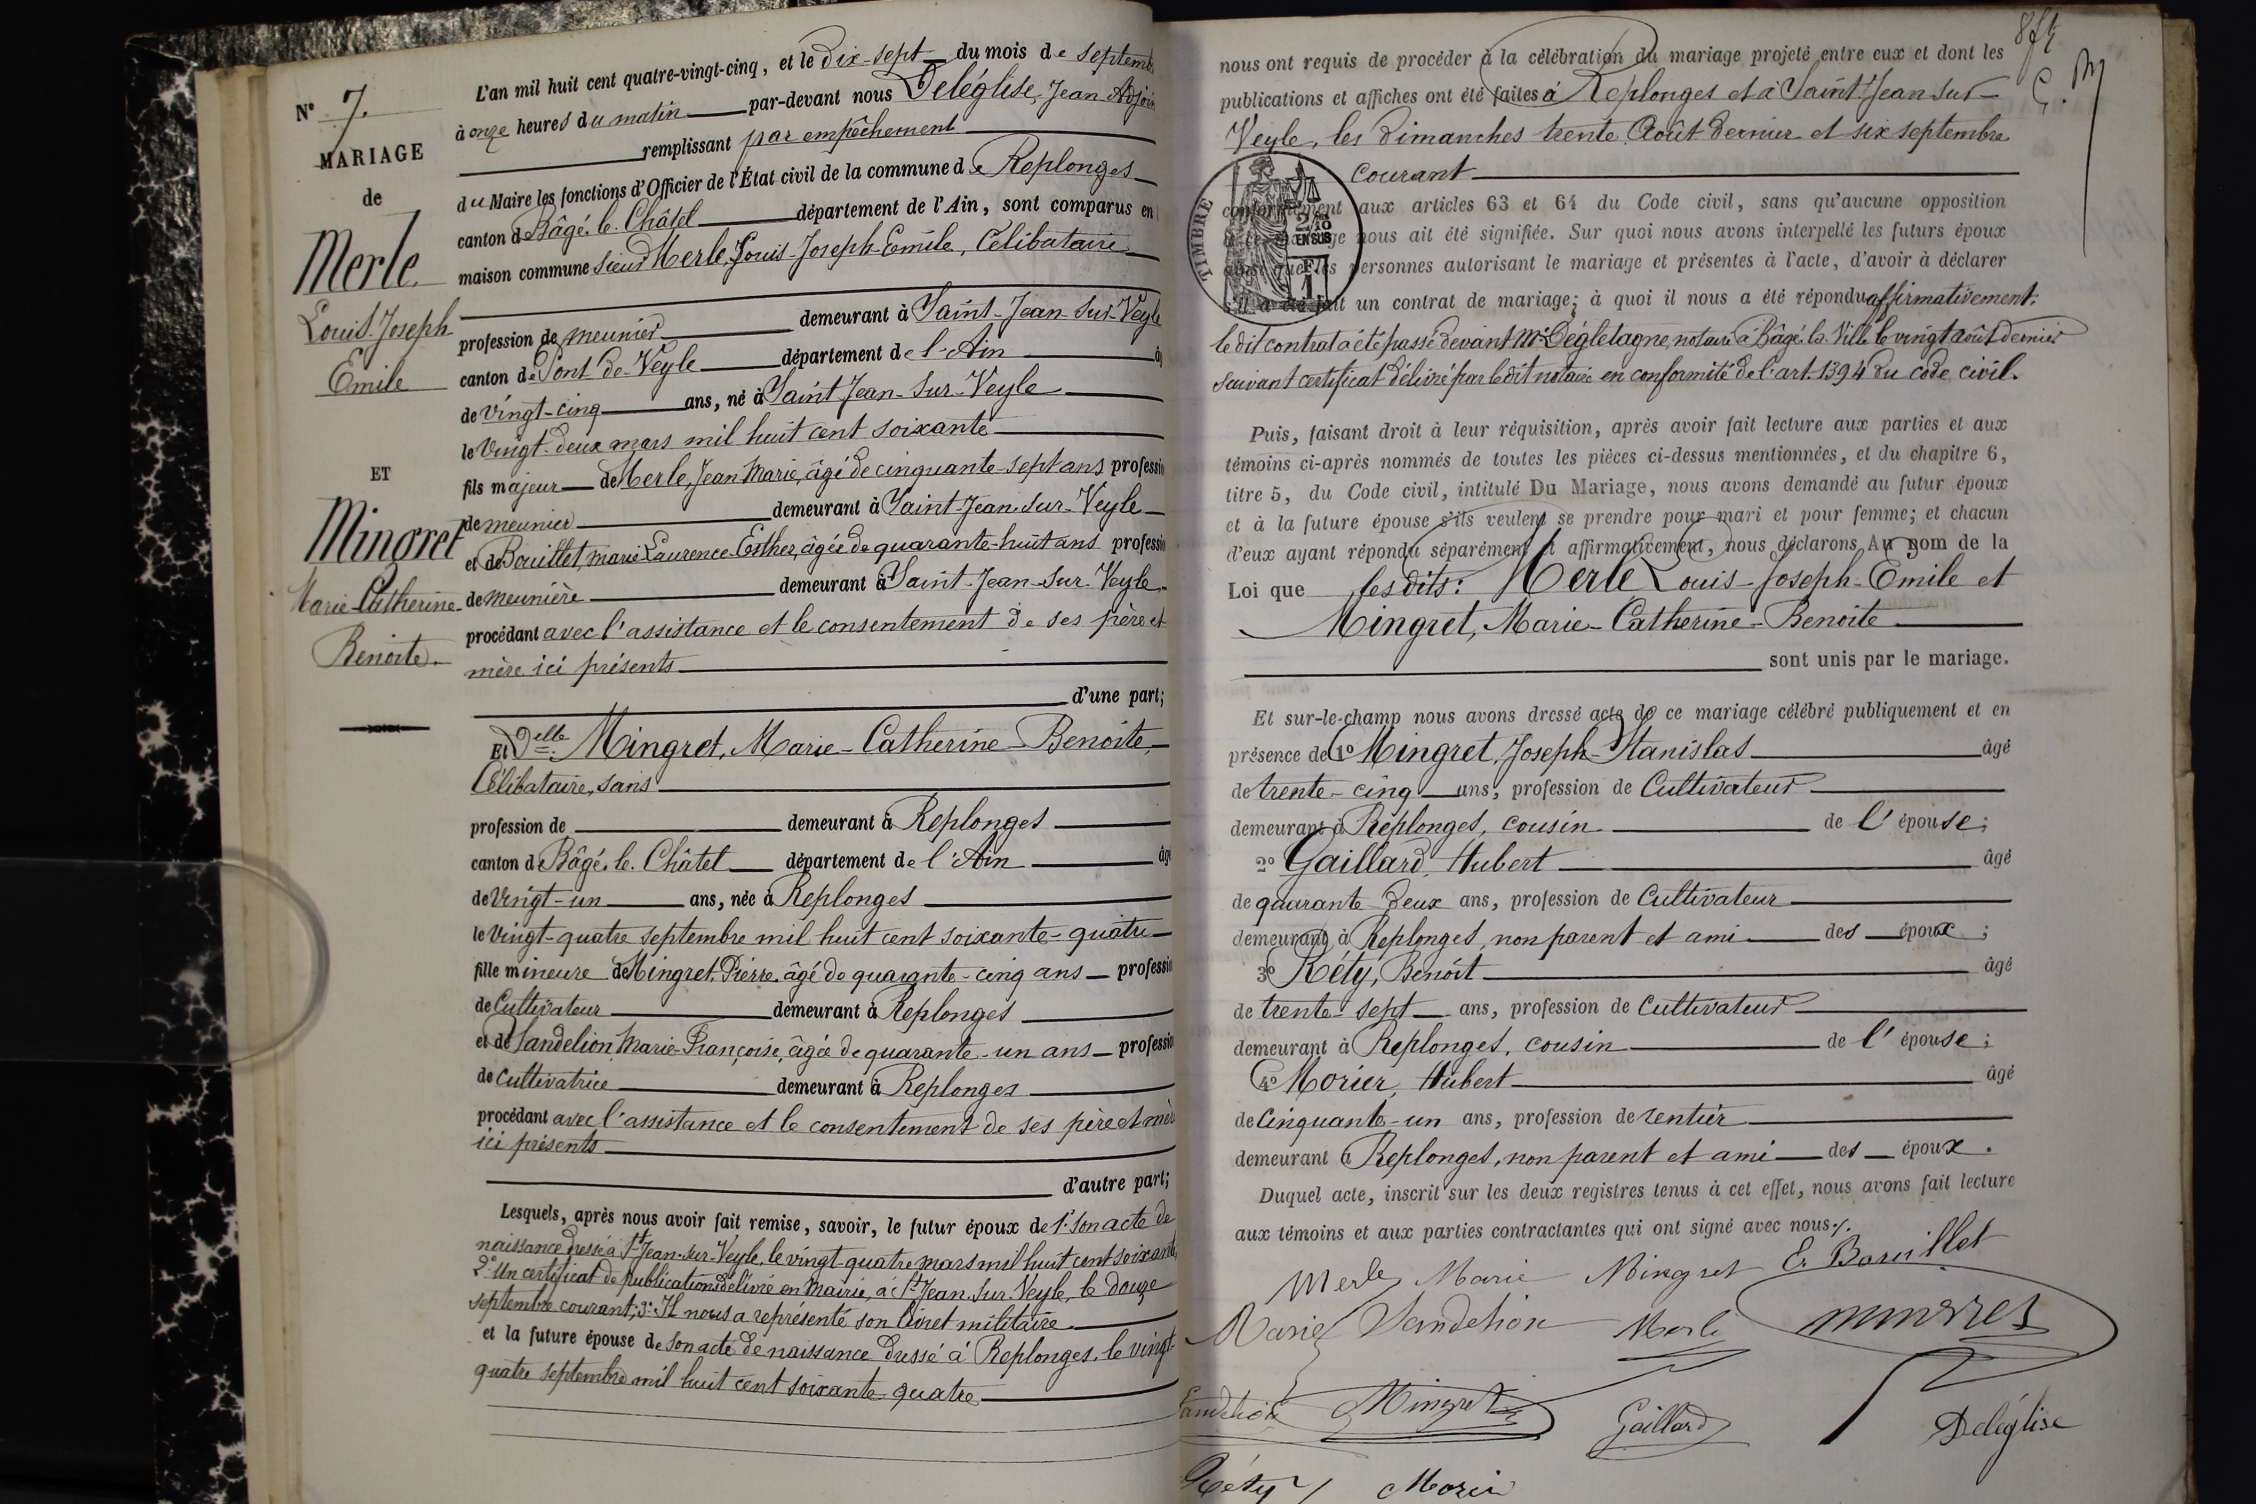 N° 7.
MARIAGE
de
Merle
Louis Joseph
Emile
ET
Mingret
Marie-Catherine
Benoite.
L'an mil huit cent quatre-vingt-cinq, et le Dix-sept du mois de septemb
à onze heures du matin par-devant nous Deléglise, Jean Adjoin
remplissant par empêchement
du Maire les fonctions d'Officier de l'État civil de la commune de Replonges
canton de Bâgé-le-Châtel département de l'Ain, sont comparus en
maison commune sieur Merle, Louis-Joseph-Emile, Célibataire
profession de meunier demeurant à Saint-Jean-Sur-Veyle
canton de Pont-de-Veyle département de l'Ain âg
de vingt-cinq ans, né à Saint Jean-Sur-Veyle
le Vingt-deux mars mil huit cent soixante
fils majeur de Merle, Jean Marie, âgé de cinquante-sept ans professio
de meunier demeurant à Saint-Jean-Sur-Veyle
et de Bouillet, marie Laurence-Esther, âgée de quarante-huit ans professio
de meunière demeurant à Saint-Jean-Sur-Veyle
procédant avec l'assistance et le consentement de ses père et
mère ici présents
d'une part;
Et Delle Mingret, Marie-Catherine-Benoite,
Célibataire, sans
profession de demeurant à Replonges
canton de Bâgé-le-Châtel département de l'Ain âgé
de Vingt-un ans, née à Replonges
le Vingt-quatre septembre mil huit cent soixante-quatre
fille mineure de Mingret, Pierre, âgé de quarante-cinq ans professio
de Cultivateur demeurant à Replonges
et de Sandelion, Marie-Françoise, âgée de quarante-un ans professio
de cultivatrice demeurant à Replonges
procédant avec l'assistance et le consentement de ses père et mère
ici présents
d'autre part;
Lesquels, après nous avoir fait remise, savoir, le futur époux de 1° son acte de
naissance dressé à St Jean-sur-Veyle, le vingt-quatre mars mil huit cent soixante
2° Un certificat de publications délivré en Mairie, à St Jean-Sur-Veyle, le douze
septembre courant; 3° Il nous a représenté son livret militaire
et la future épouse de son acte de naissance dressé à Replonges, le vingt-
quatre septembre mil huit cent soixante-quatre
nous ont requis de procéder à la célébration du mariage projeté entre eux et dont les
publications et affiches ont été faites à Replonges et à Saint-Jean-sur-
Veyle, les dimanches trente Août dernier et six septembre
courant
conformément aux articles 63 et 64 du Code civil, sans qu'aucune opposition
à ce mariage nous ait été signifiée. Sur quoi nous avons interpellé les futurs époux
ainsi que les personnes autorisant le mariage et présentes à l'acte, d'avoir à déclarer
s'il a été fait un contrat de mariage; à quoi il nous a été répondu affirmativement;
le dit contrat a été passé devant Me Dégletagne, notaire à Bâgé-la-Ville le vingt août dernier
suivant certificat délivré par le dit notaire en conformité de l'art. 1394 du code civil.
TIMBRE
2/10
EN SUS
1
Puis, faisant droit à leur réquisition, après avoir fait lecture aux parties et aux
témoins ci-après nommés de toutes les pièces ci-dessus mentionnées, et du chapitre 6,
titre 5, du Code civil, intitulé Du Mariage, nous avons demandé au futur époux
et à la future épouse s'ils veulent se prendre pour mari et pour femme; et chacun
d'eux ayant répondu séparément et affirmativement, nous déclarons Au nom de la
Loi que les dits: Merle Louis-Joseph-Emile et
Mingret, Marie-Catherine-Benoite
sont unis par le mariage.
Et sur-le-champ nous avons dressé acte de ce mariage célébré publiquement et en
présence de 1° Mingret, Joseph-Stanislas âgé
de trente-cinq ans, profession de Cultivateur
demeurant à Replonges, cousin de l'épouse;
2° Gaillard, Hubert âgé
de quarante-deux ans, profession de Cultivateur
demeurant à Replonges, non parent et ami des époux;
3° Réty, Benoit âgé
de trente-sept ans, profession de Cultivateur
demeurant à Replonges, cousin de l'épouse;
4° Morier, Hubert âgé
de Cinquante-un ans, profession de rentier
demeurant à Replonges, non parent et ami des époux.
Duquel acte, inscrit sur les deux registres tenus à cet effet, nous avons fait lecture
aux témoins et aux parties contractantes qui ont signé avec nous.
Merle Marie Mingret E. Bouillet
Marie Sandelion Merle
Sandelion Mingret Gaillard Deléglise
Réty Morier